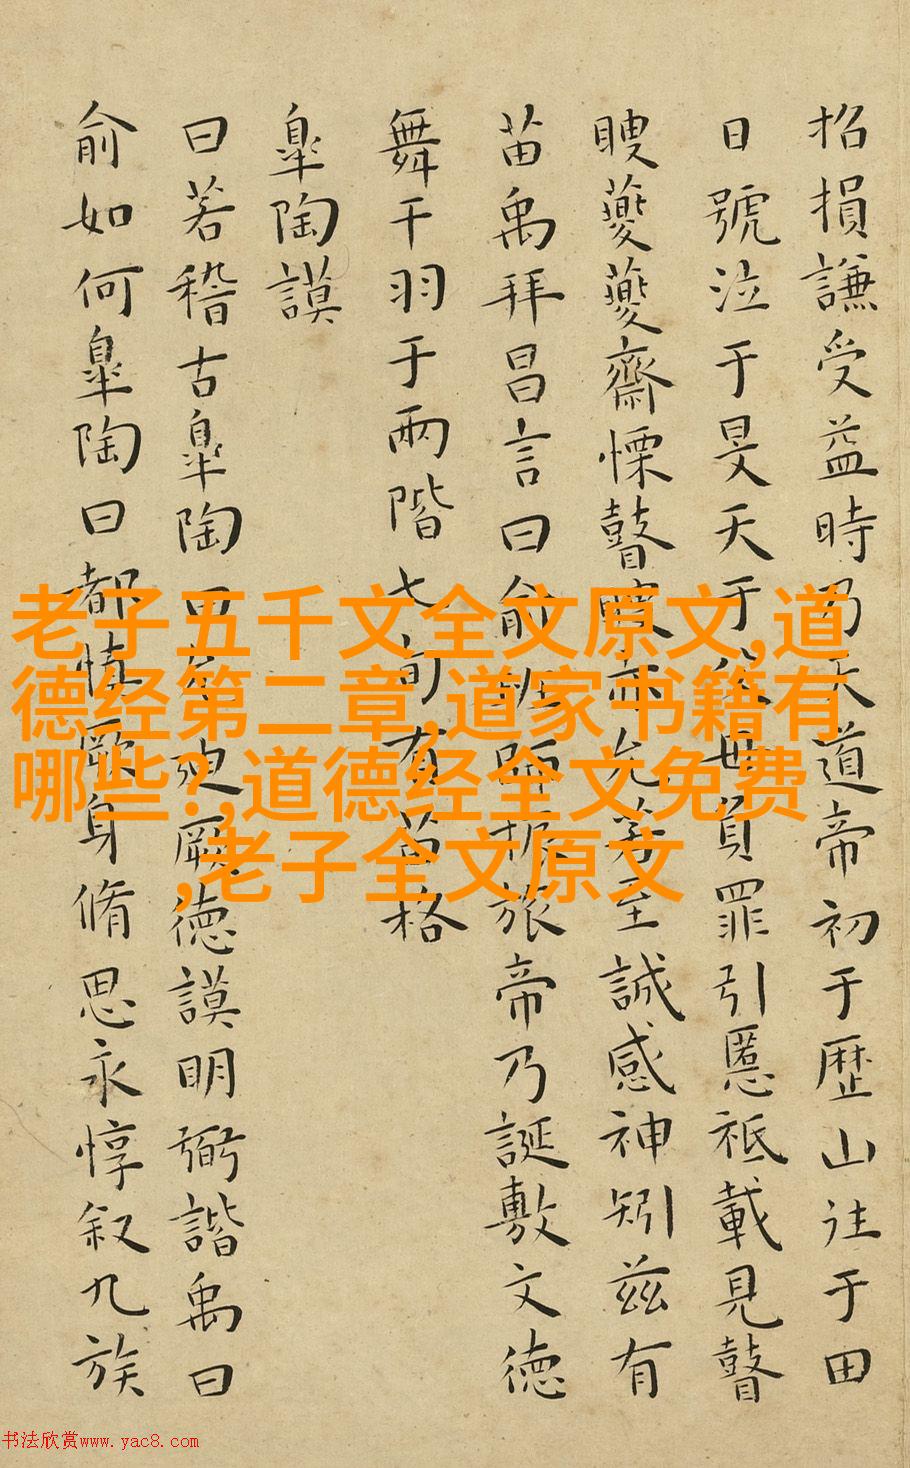 招損謙受益時乃天道帝初于歴山往于田
日號泣于旻天于父母負罪引慝祗載見瞽
瞍夔夔齋慄瞽瞍亦允若至誠感神矧茲有
苗禹拜昌言曰俞班師振旅帝乃誕敷文德
舞干羽于兩階七旬有苗格
皋陶謨
曰若稽古皋陶曰允迪厥德謨明弼諧禹曰
俞如何皋陶曰都慎厥身脩思永惇叙九族
老子五千文全文原文,道
德经第二章,道家书籍有
哪些?,道德经全文免费
,老子全文原文
书法欣赏www.yac8.com